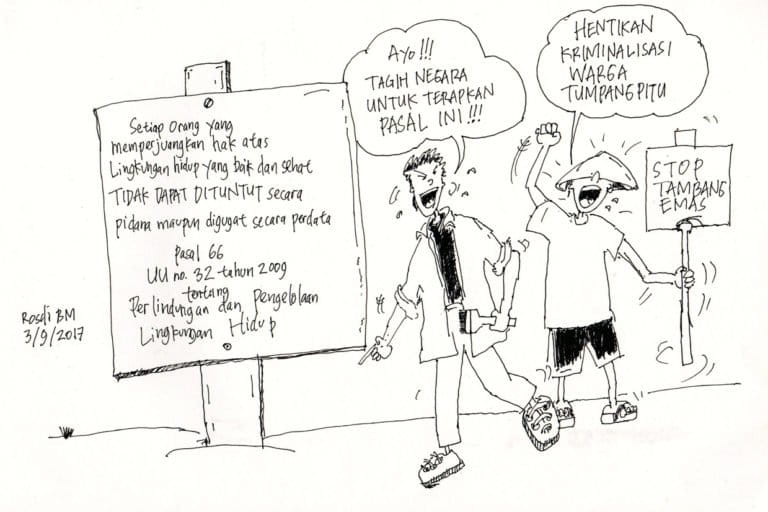 Setiap Orang yang
memperjuangkan hak atas
Lingkungan hidup yang baik dan sehat
TIDAK DAPAT DITUNTUT secara
pidana maupun digugat secara perdata
Pasal 66
UU no. 32 tahun 2009
tentang
Perlindungan dan Pengelolaan
Lingkungan Hidup
Rosdi BM
3/9/2017
AYO!!!
TAGIH NEGARA
UNTUK TERAPKAN
PASAL INI!!!
HENTIKAN
KRIMINALISASI
WARGA
TUMPANG PITU
STOP
TAMBANG
EMAS